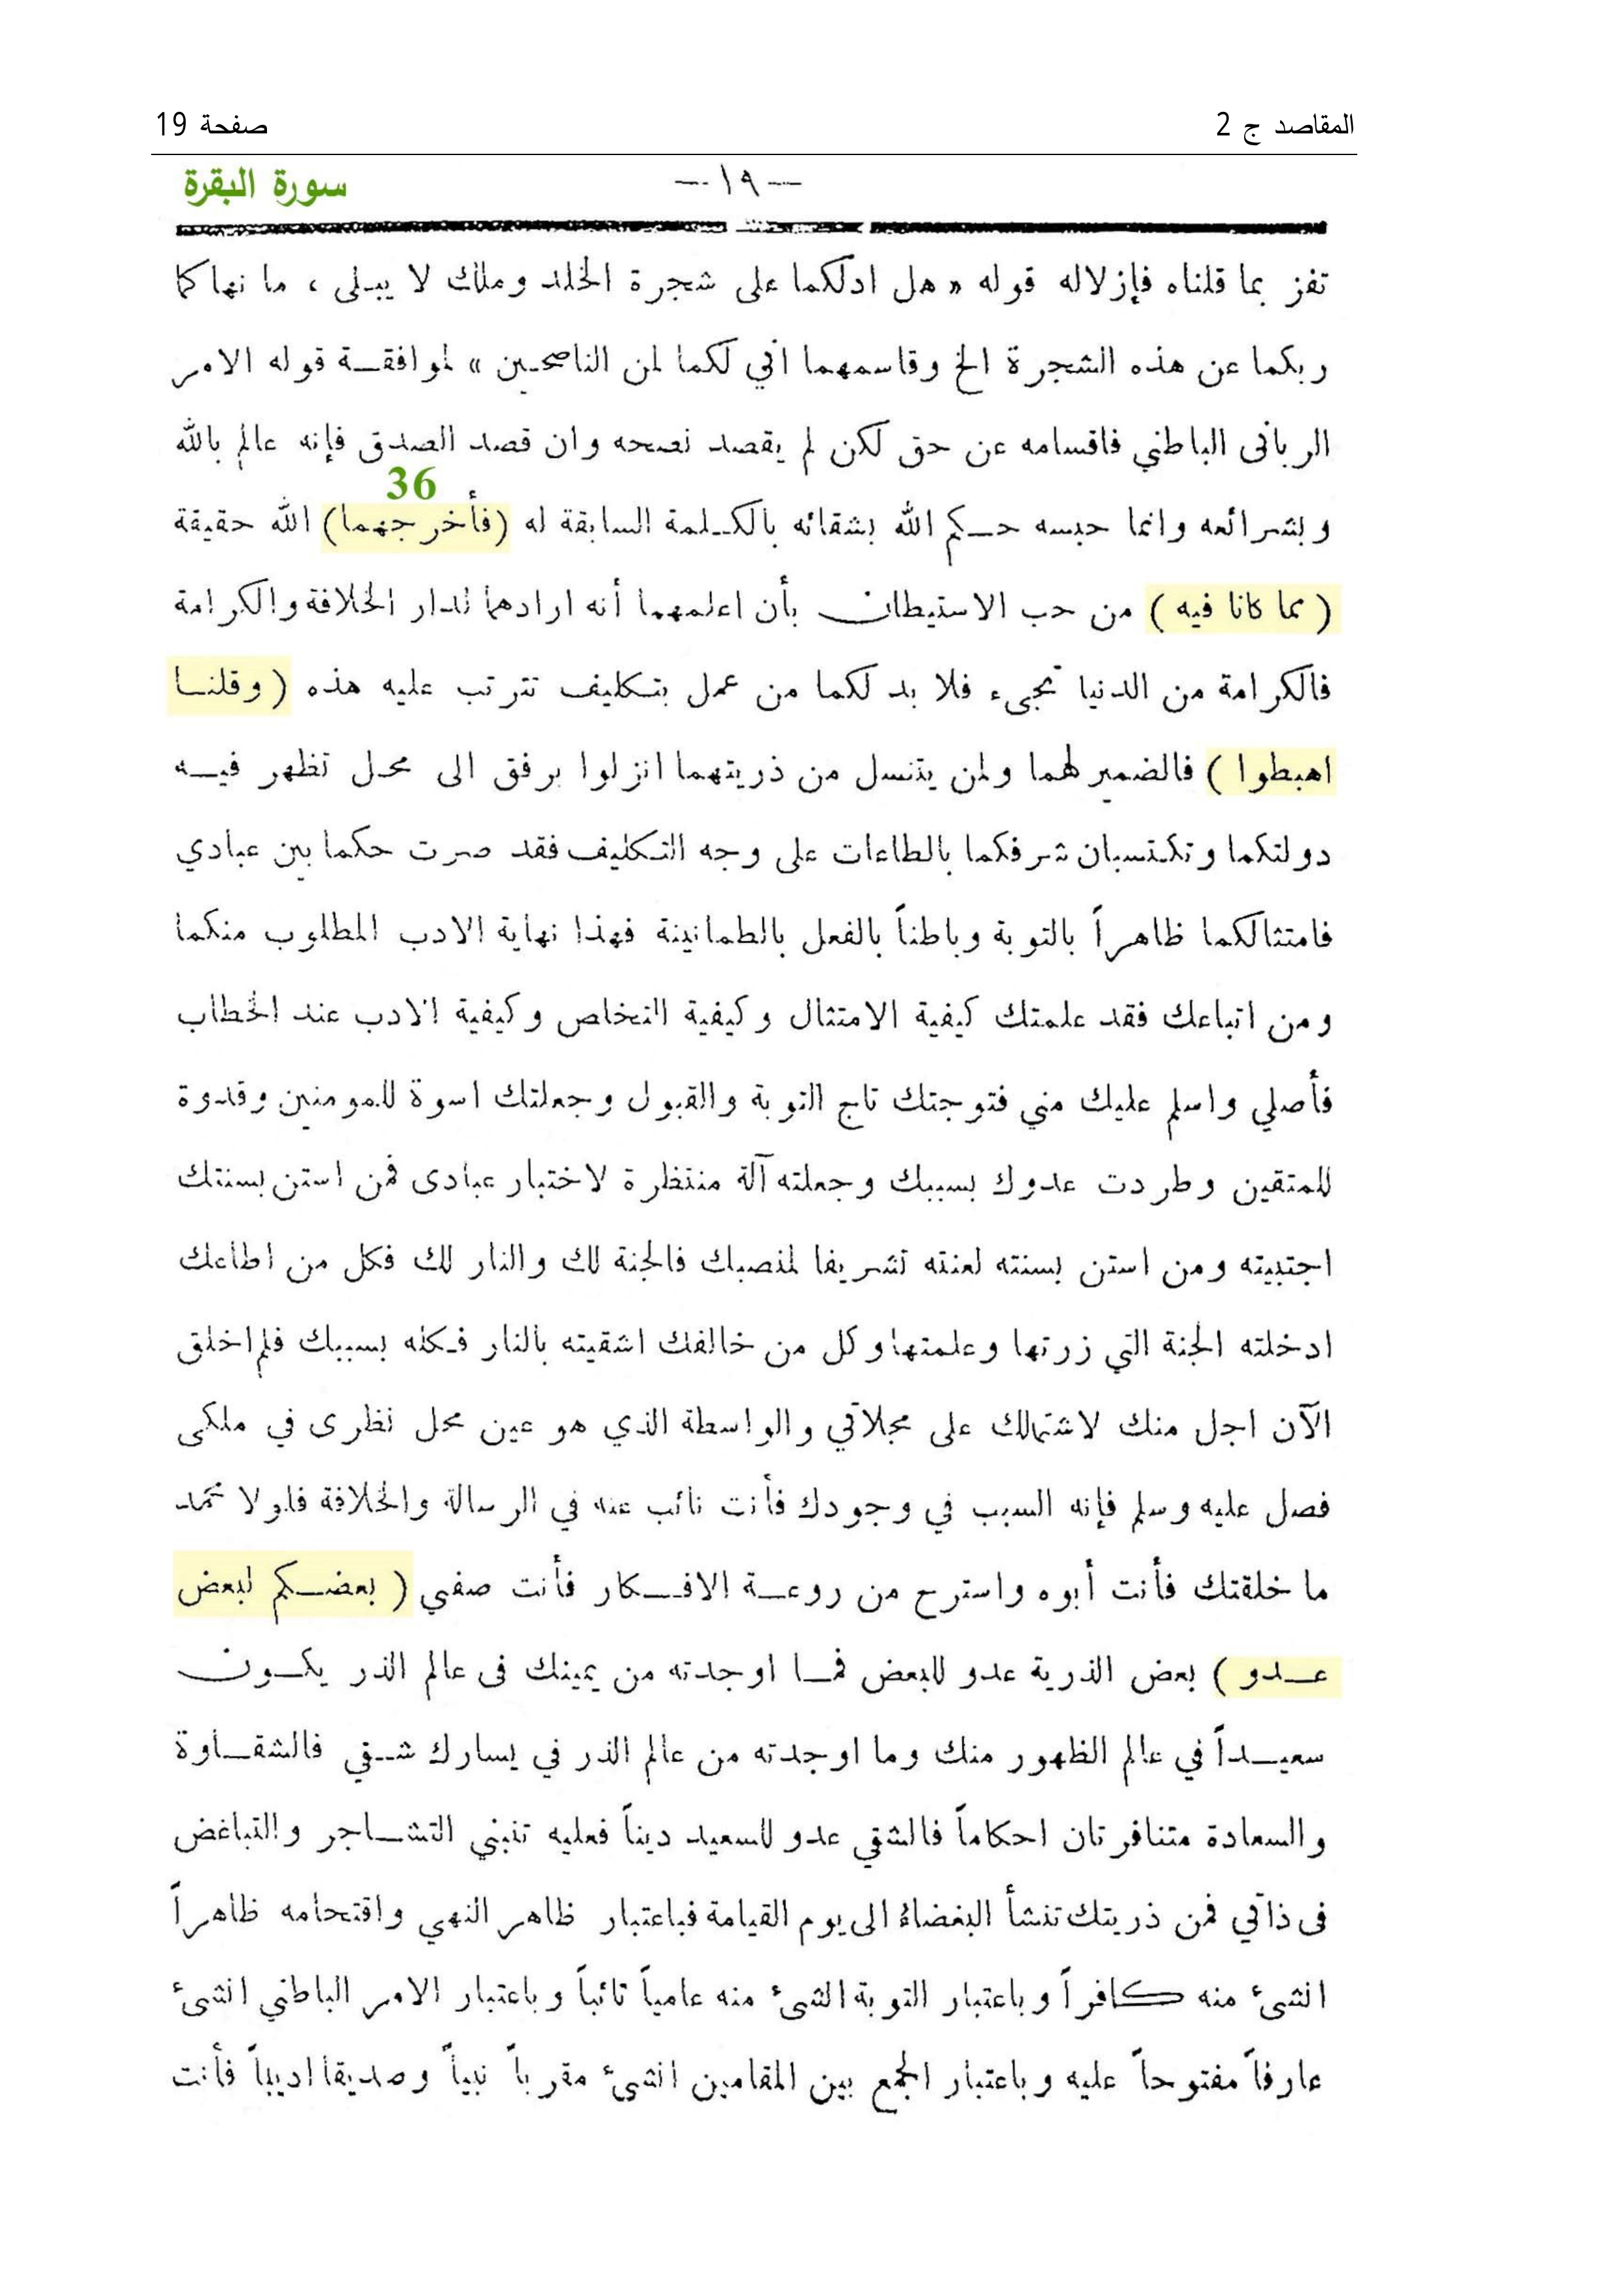 المقاصد ج 2
صفحة 19
—١٩—
سورة البقرة
تفز بما قلناه فإزلاله قوله « هل ادلكما على شجرة الخلد وملك لا يبلى ، ما نهاكما
ربكما عن هذه الشجرة الخ وقاسمهما اني لكما لمن الناصحين » لموافقة قوله الامر
الربانى الباطني فاقسامه عن حق لكن لم يقصد نصحه وان قصد الصدق فإنه عالم بالله
36
وبشرائعه وانما حبسه حكم الله بشقائه بالكلمة السابقة له (فأخرجهما) الله حقيقة
( مما كانا فيه ) من حب الاستيطان بأن اعلمهما أنه ارادهما لدار الخلافة والكرامة
فالكرامة من الدنيا تجيء فلا بد لكما من عمل بتكليف تترتب عليه هذه ( وقلنا
اهبطوا ) فالضمير لهما ولمن يتنسل من ذريتهما انزلوا برفق الى محل تظهر فيه
دولتكما وتكتسبان شرفكما بالطاعات على وجه التكليف فقد صرت حكما بين عبادي
فامتثالكما ظاهراً بالتوبة وباطناً بالفعل بالطمانينة فهذا نهاية الادب المطلوب منكما
ومن اتباعك فقد علمتك كيفية الامتثال وكيفية التخلص وكيفية الادب عند الخطاب
فأصلي واسلم عليك مني فتوجتك تاج التوبة والقبول وجعلتك اسوة للمومنين وقدوة
للمتقين وطردت عدوك بسببك وجعلته آلة منتظرة لاختبار عبادى فمن استن بسنتك
اجتبيته ومن استن بسنته لعنته تشريفا لمنصبك فالجنة لك والنار لك فكل من اطاعك
ادخلته الجنة التي زرتها وعلمتها وكل من خالفك اشقيته بالنار فكله بسببك فلم اخلق
الآن اجل منك لاشتمالك على مجلاتي والواسطة الذي هو عين محل نظرى في ملكى
فصل عليه وسلم فإنه السبب في وجودك فأنت نائب عنه في الرسالة والخلافة فلولا محمد
ما خلقتك فأنت أبوه واسترح من روعة الافكار فأنت صفيي ( بعضكم لبعض
عدو ) بعض الذرية عدو للبعض فما اوجدته من يمينك فى عالم الذر يكون
سعيداً في عالم الظهور منك وما اوجدته من عالم الذر في يسارك شقي فالشقاوة
والسعادة متنافرتان احكاماً فالشقي عدو للسعيد ديناً فعليه تنبني التشاجر والتباغض
فى ذاتي فمن ذريتك تنشأ البغضاء الى يوم القيامة فباعتبار ظاهر النهي واقتحامه ظاهراً
انشئ منه كافراً وباعتبار التوبة انشئ منه عامياً تائباً وباعتبار الامر الباطني انشئ
عارفاً مفتوحاً عليه وباعتبار الجمع بين المقامين انشئ مقرباً نبياً وصديقا اديباً فأنت